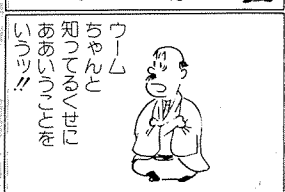 ウーム
ちゃんと
知ってるくせに
ああいうことを
いうッ!!